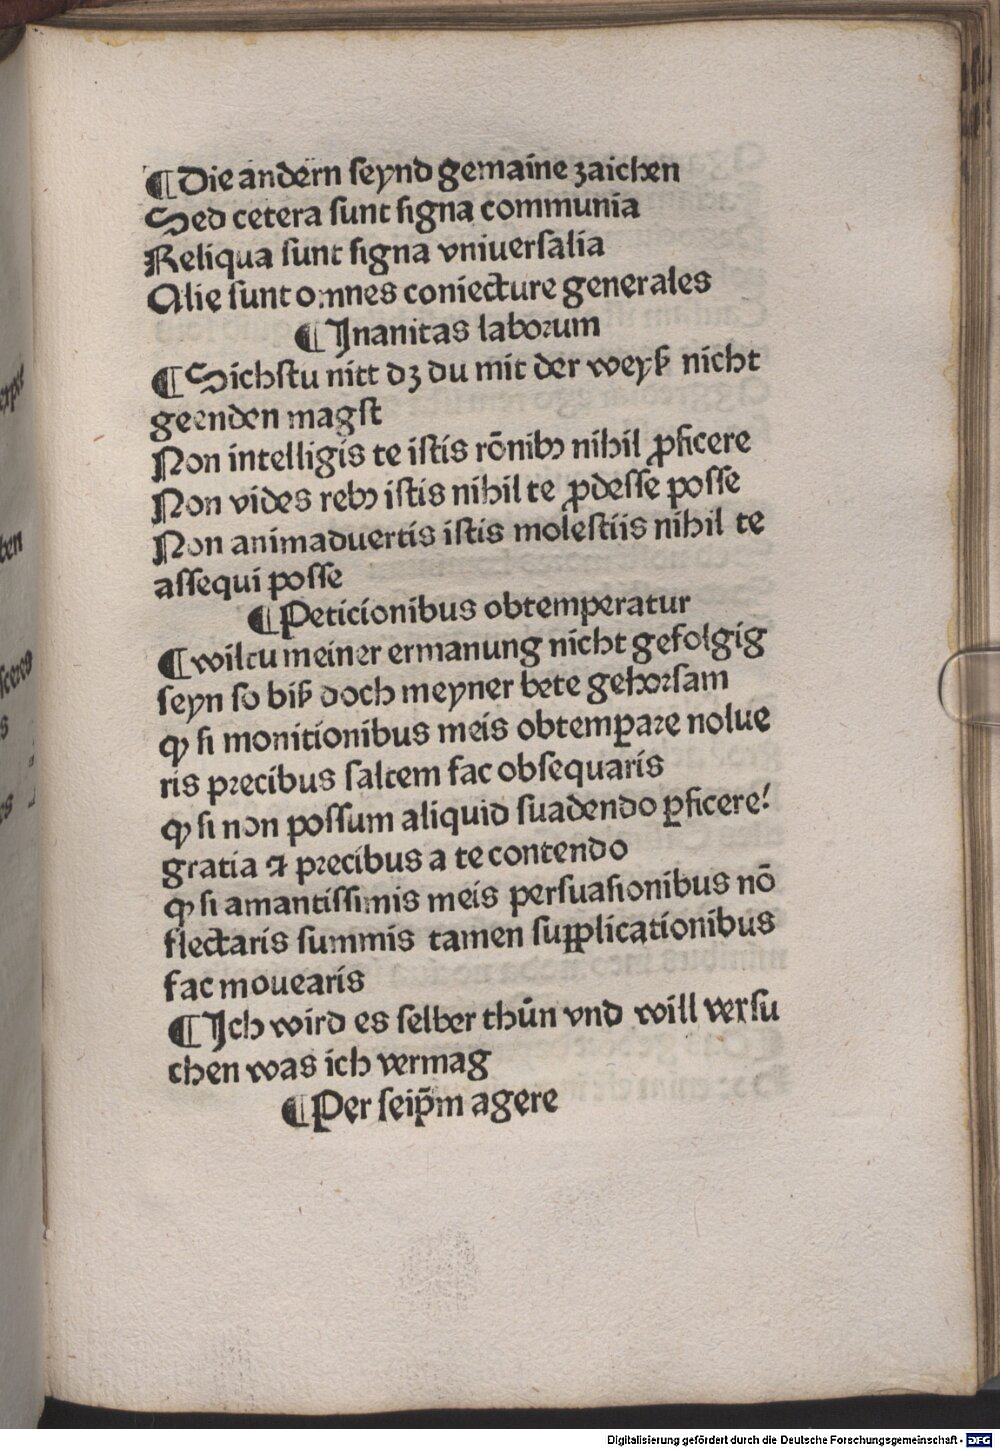 ¶Die andern seynd gemaine zaichen
Sed cetera sunt signa communia
Reliqua sunt signa vniuersalia
Alie sunt omnes coniecture generales
¶Inanitas laborum
¶Sichstu nitt dz du mit der weyß nicht
geenden magst
Non intelligis te istis rōnibꝫ nihil ꝓficere
Non vides rebꝫ istis nihil te ꝓdesse posse
Non animaduertis istis molestiis nihil te
assequi posse
¶Peticionibus obtemperatur
¶wiltu meiner ermanung nicht gefolgig
seyn so biß doch meyner bete gehorsam
ꝙ si monitionibus meis obtemꝑare nolue
ris precibus saltem fac obsequaris
ꝙ si non possum aliquid suadendo ꝑficere!
gratia ⁊ precibus a te contendo
ꝙ si amantissimis meis persuasionibus nō
flectaris summis tamen supplicationibus
fac mouearis
¶Ich wird es selber thůn vnd will versu
chen was ich vermag
¶Per seip̄m agere
Digitalisierung gefördert durch die Deutsche Forschungsgemeinschaft - DFG